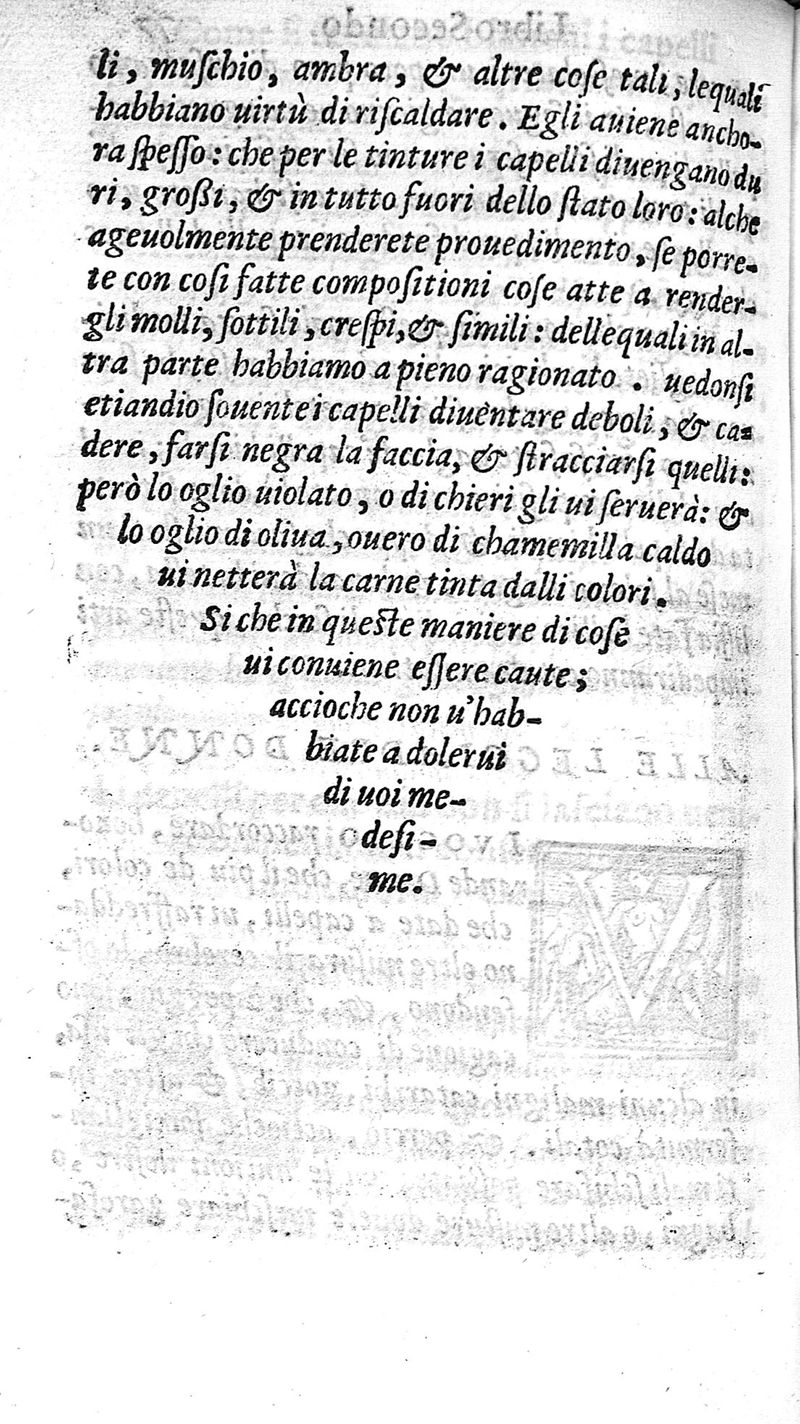 li, muſchio, ambra, & altre coſe tali, lequali
habbiano uirtù di riſcaldare. Egli auiene ancho-
ra ſpeſſo: che per le tinture i capelli diuengano du
ri, groſſi, & in tutto fuori dello ſtato loro: alche
ageuolmente prenderete prouedimento, ſe porre-
te con coſi fatte compoſitioni coſe atte a render-
gli molli, ſottili, creſpi, & ſimili: dellequali in al-
tra parte habbiamo a pieno ragionato. uedonſi
etiandio ſouente i capelli diuentare deboli, & ca-
dere, farſi negra la faccia, & ſtracciarſi quelli:
però lo oglio uiolato, o di chieri gli ui ſeruerà: &
lo oglio di oliua, ouero di chamemilla caldo
ui netterà la carne tinta dalli colori.
Si che in queſte maniere di coſe
ui conuiene eſſere caute;
accioche non u'hab-
biate a dolerui
di uoi me-
deſi-
me.